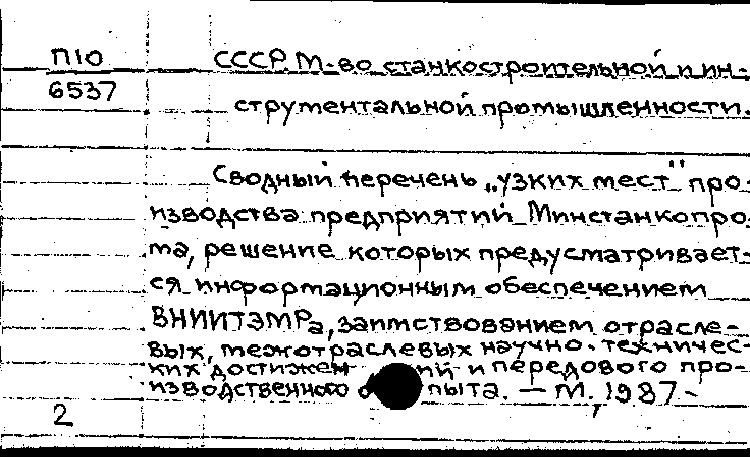 П10
6537
СССР. М-во станкостроительной и ин-
струментальной промышленности.
Сводный перечень „узких мест" про-
изводства предприятий Минстанкопро-
ма, решение которых предусматривает-
ся информационным обеспечением
ВНИИТЭМРа, заимствованием отрасле-
вых, межотраслевых научно-техничес-
ких достижен ий и передового про-
изводственного о пыта. — М., 1987 -
2